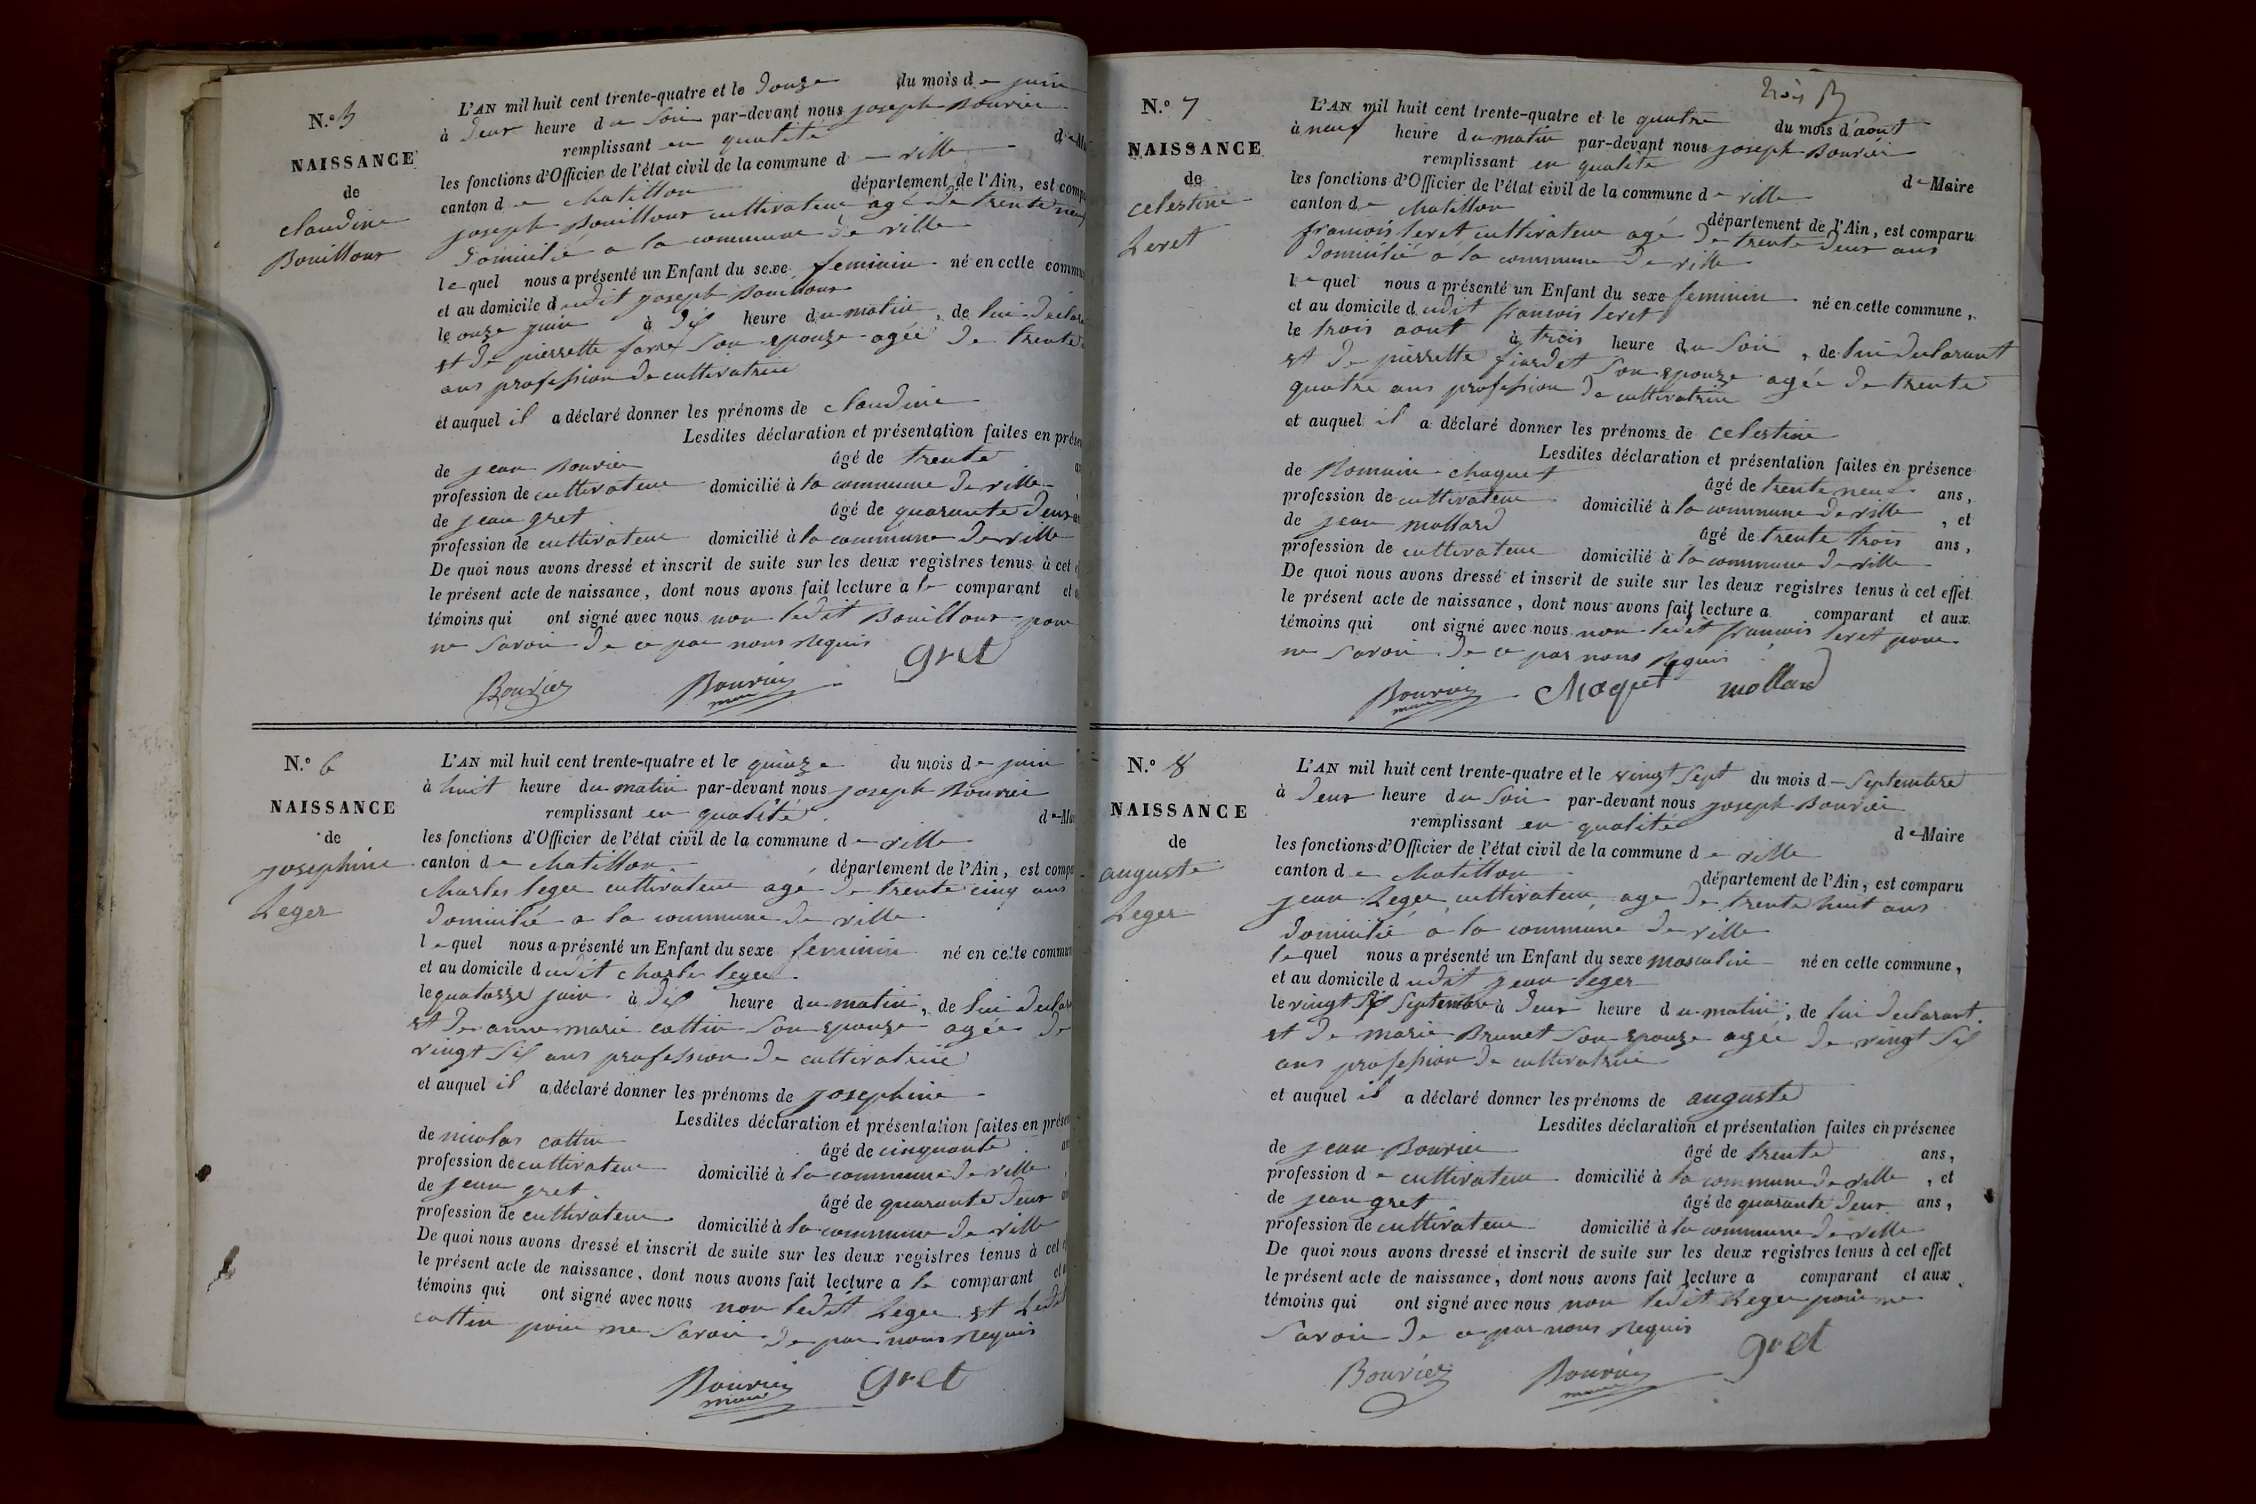 N.o 5
NAISSANCE
de
claudine
Bouilloux
L'AN mil huit cent trente-quatre et le douze du mois de juin
à deux heure du soir par-devant nous joseph Bouvier
remplissant en qualité de Mai
les fonctions d'Officier de l'état civil de la commune de ville
canton de chatillon département de l'Ain, est compa
joseph Bouilloux cultivateur agé de trente neuf
domicilié a la commune de ville
lequel nous a présenté un Enfant du sexe feminin né en cette commu
et au domicile dudit joseph Bouilloux
le onze juin à dix heure du matin, de lui declara
et de pierrette son epouze agée de trente
ans profession de cultivatrice
et auquel il a déclaré donner les prénoms de claudine
Lesdites déclaration et présentation faites en prése
de jean Bouvier âgé de trente
profession de cultivateur domicilié à la commune de ville
de jean gret âgé de quarante deux
profession de cultivateur domicilié à la commune de ville
De quoi nous avons dressé et inscrit de suite sur les deux registres tenus à cet
le présent acte de naissance, dont nous avons fait lecture a le comparant et
témoins qui ont signé avec nous non ledit Bouilloux pour
ne savoir de ce par nous requis
gret
Bouvier Bouvier
maire
N.o 6
NAISSANCE
de
josephine
Leger
L'AN mil huit cent trente-quatre et le quinze du mois de juin
à huit heure du matin par-devant nous joseph Bouvier
remplissant en qualité de Mai
les fonctions d'Officier de l'état civil de la commune de ville
canton de chatillon département de l'Ain, est compa
charles leger cultivateur agé de trente cinq ans
domicilié a la commune de ville
lequel nous a présenté un Enfant du sexe feminin né en cette commun
et au domicile dudit charles leger
le quatorze juin à dix heure du matin, de lui declara
et de anne marie cottin son epouze agée de
vingt six ans profession de cultivatrice
et auquel il a déclaré donner les prénoms de josephine
Lesdites déclaration et présentation faites en prése
de nicolas cottin âgé de cinquante an
profession de cultivateur domicilié à la commune de ville
de jean gret âgé de quarante deux
profession de cultivateur domicilié à la commune de ville
De quoi nous avons dressé et inscrit de suite sur les deux registres tenus à cet
le présent acte de naissance, dont nous avons fait lecture a le comparant et
témoins qui ont signé avec nous non ledit Leger et ledit
cottin pour ne savoir de par nous requis
Bouvier gret
maire
trois
N.o 7
NAISSANCE
de
celestine
Leret
L'AN mil huit cent trente-quatre et le quatre du mois d'août
à neuf heure du matin par-devant nous joseph Bouvier
remplissant en qualité de Maire
les fonctions d'Officier de l'état civil de la commune de ville
canton de chatillon département de l'Ain, est comparu
francois leret cultivateur agé de trente deux ans
domicilié a la commune de ville
lequel nous a présenté un Enfant du sexe feminin né en cette commune,
et au domicile dudit francois leret
le trois aout à trois heure du soir, de lui declarant
et de pierrette son epouze agée de trente
quatre ans profession de cultivatrice
et auquel il a déclaré donner les prénoms de celestine
Lesdites déclaration et présentation faites en présence
de Romain chaquet âgé de trente neuf ans,
profession de cultivateur domicilié à la commune de ville, et
de jean mollard âgé de trente trois ans,
profession de cultivateur domicilié à la commune de ville
De quoi nous avons dressé et inscrit de suite sur les deux registres tenus à cet effet
le présent acte de naissance, dont nous avons fait lecture a comparant et aux
témoins qui ont signé avec nous non ledit francois leret pour
ne savoir de ce par nous requis
Bouvier Chaquet mollard
maire
N.o 8
NAISSANCE
de
auguste
Leger
L'AN mil huit cent trente-quatre et le vingt sept du mois de Septembre
à deux heure du soir par-devant nous joseph Bouvier
remplissant en qualité de Maire
les fonctions d'Officier de l'état civil de la commune de ville
canton de chatillon département de l'Ain, est comparu
jean Leger cultivateur age de trente huit ans
domicilié a la commune de ville
lequel nous a présenté un Enfant du sexe masculin né en cette commune,
et au domicile dudit jean leger
le vingt six Septembre à deux heure du matin, de lui declarant
et de marie Brunet son epouze agée de vingt six
ans profession de cultivatrice
et auquel il a déclaré donner les prénoms de auguste
Lesdites déclaration et présentation faites en présence
de jean Bouvier âgé de trente ans,
profession de cultivateur domicilié à la commune de ville, et
de jean gret âgé de quarante deux ans,
profession de cultivateur domicilié à la commune de ville
De quoi nous avons dressé et inscrit de suite sur les deux registres tenus à cet effet
le présent acte de naissance, dont nous avons fait lecture a comparant et aux
témoins qui ont signé avec nous non ledit Leger pour ne
savoir de ce par nous requis
Bouvier Bouvier gret
maire